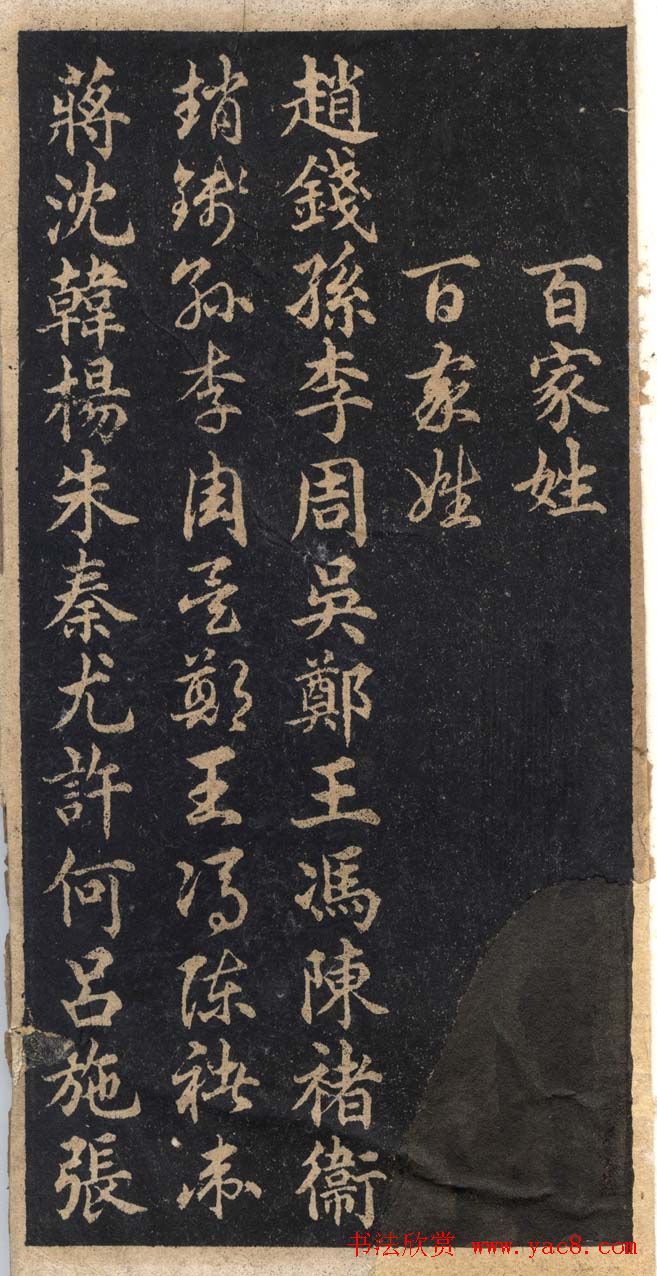 百家姓
百家姓
趙錢孫李周吳鄭王馮陳褚衞
趙錢孫李周吳鄭王馮陳褚衞
蔣沈韓楊朱秦尤許何呂施張
书法欣赏 www.yac8.com